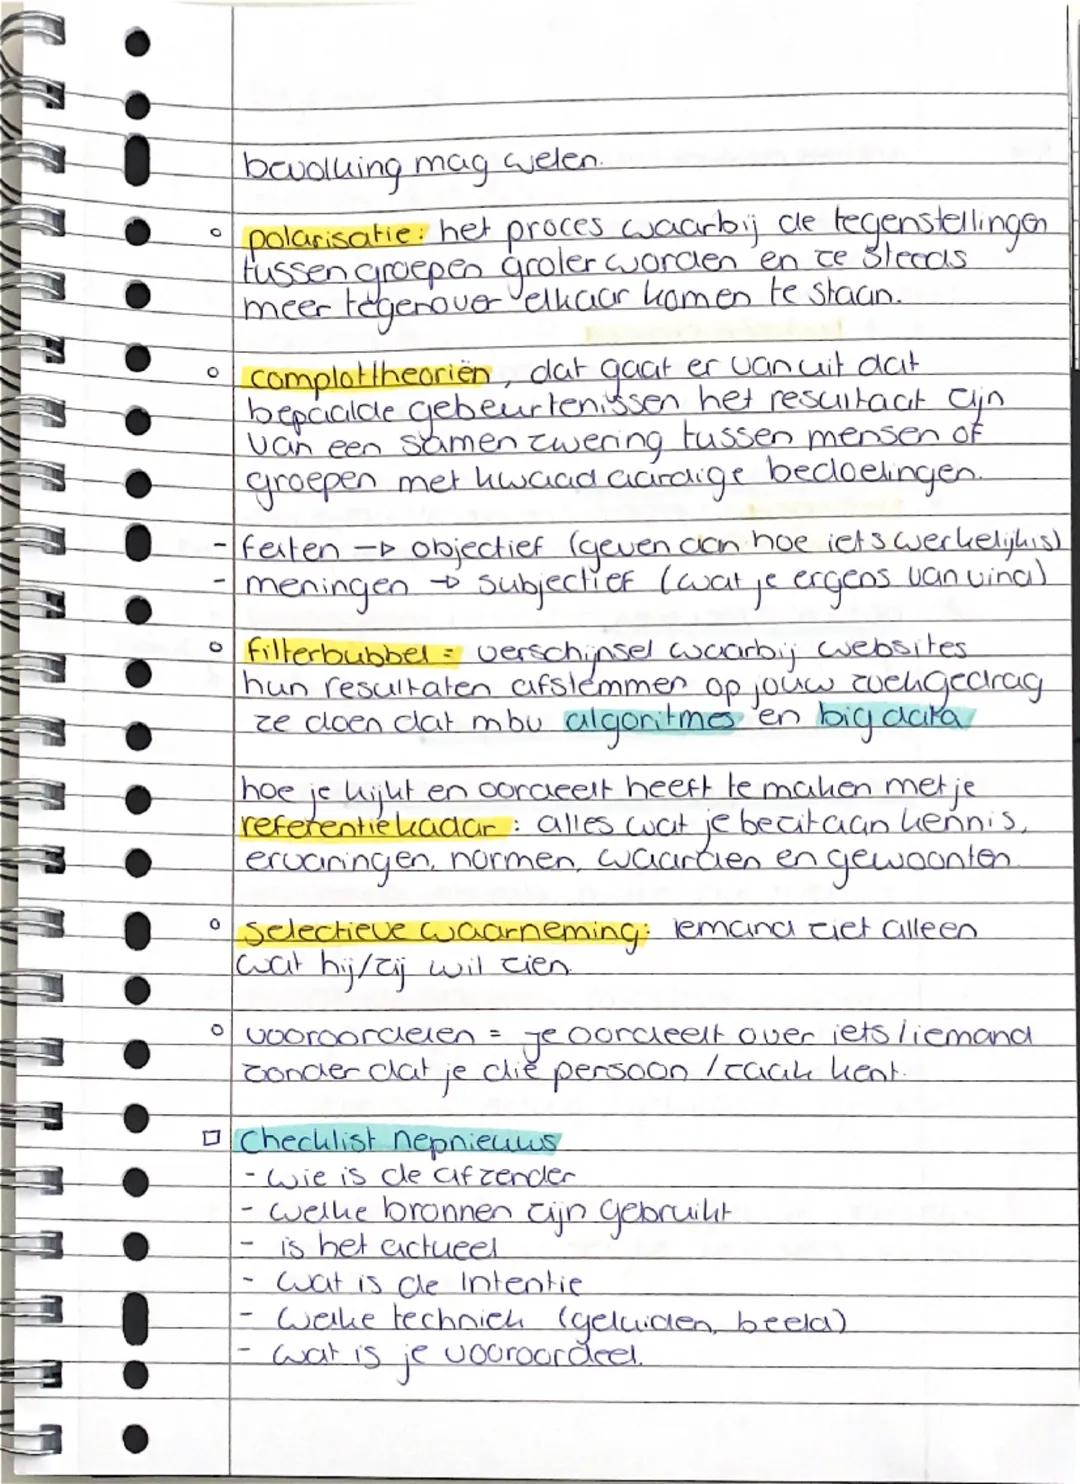 bevolking mag weten.
○ polarisatie: het proces waarbij de tegenstellingen
tussen groepen groter worden en ze steeds
meer tegenover elkaar komen te staan.
○ complottheoriën, dat gaat er van uit dat
bepaalde gebeurtenissen het resultaat zijn
van een samenzwering tussen mensen of
groepen met kwaadaardige bedoelingen.
- feiten → objectief (geven aan hoe iets werkelijk is)
- meningen → subjectief (wat je ergens van vind)
○ filterbubbel = verschijnsel waarbij websites
hun resultaten afstemmen op jouw zoekgedrag
ze doen dat mbv algoritmes en big data
hoe je kijkt en oordeelt heeft te maken met je
referentiekadar : alles wat je bezit aan kennis,
ervaringen, normen, waarden en gewoonten.
○ selectieve waarneming: iemand ziet alleen
wat hij/zij wil zien.
○ vooroordelen = je oordeelt over iets/iemand
zonder dat je die persoon / zaak kent.
□ Checklist nepnieuws
- wie is de afzender
- welke bronnen zijn gebruikt
- is het actueel
- wat is de Intentie
- welke techniek (geluiden, beeld)
- wat is je vooroordeel.